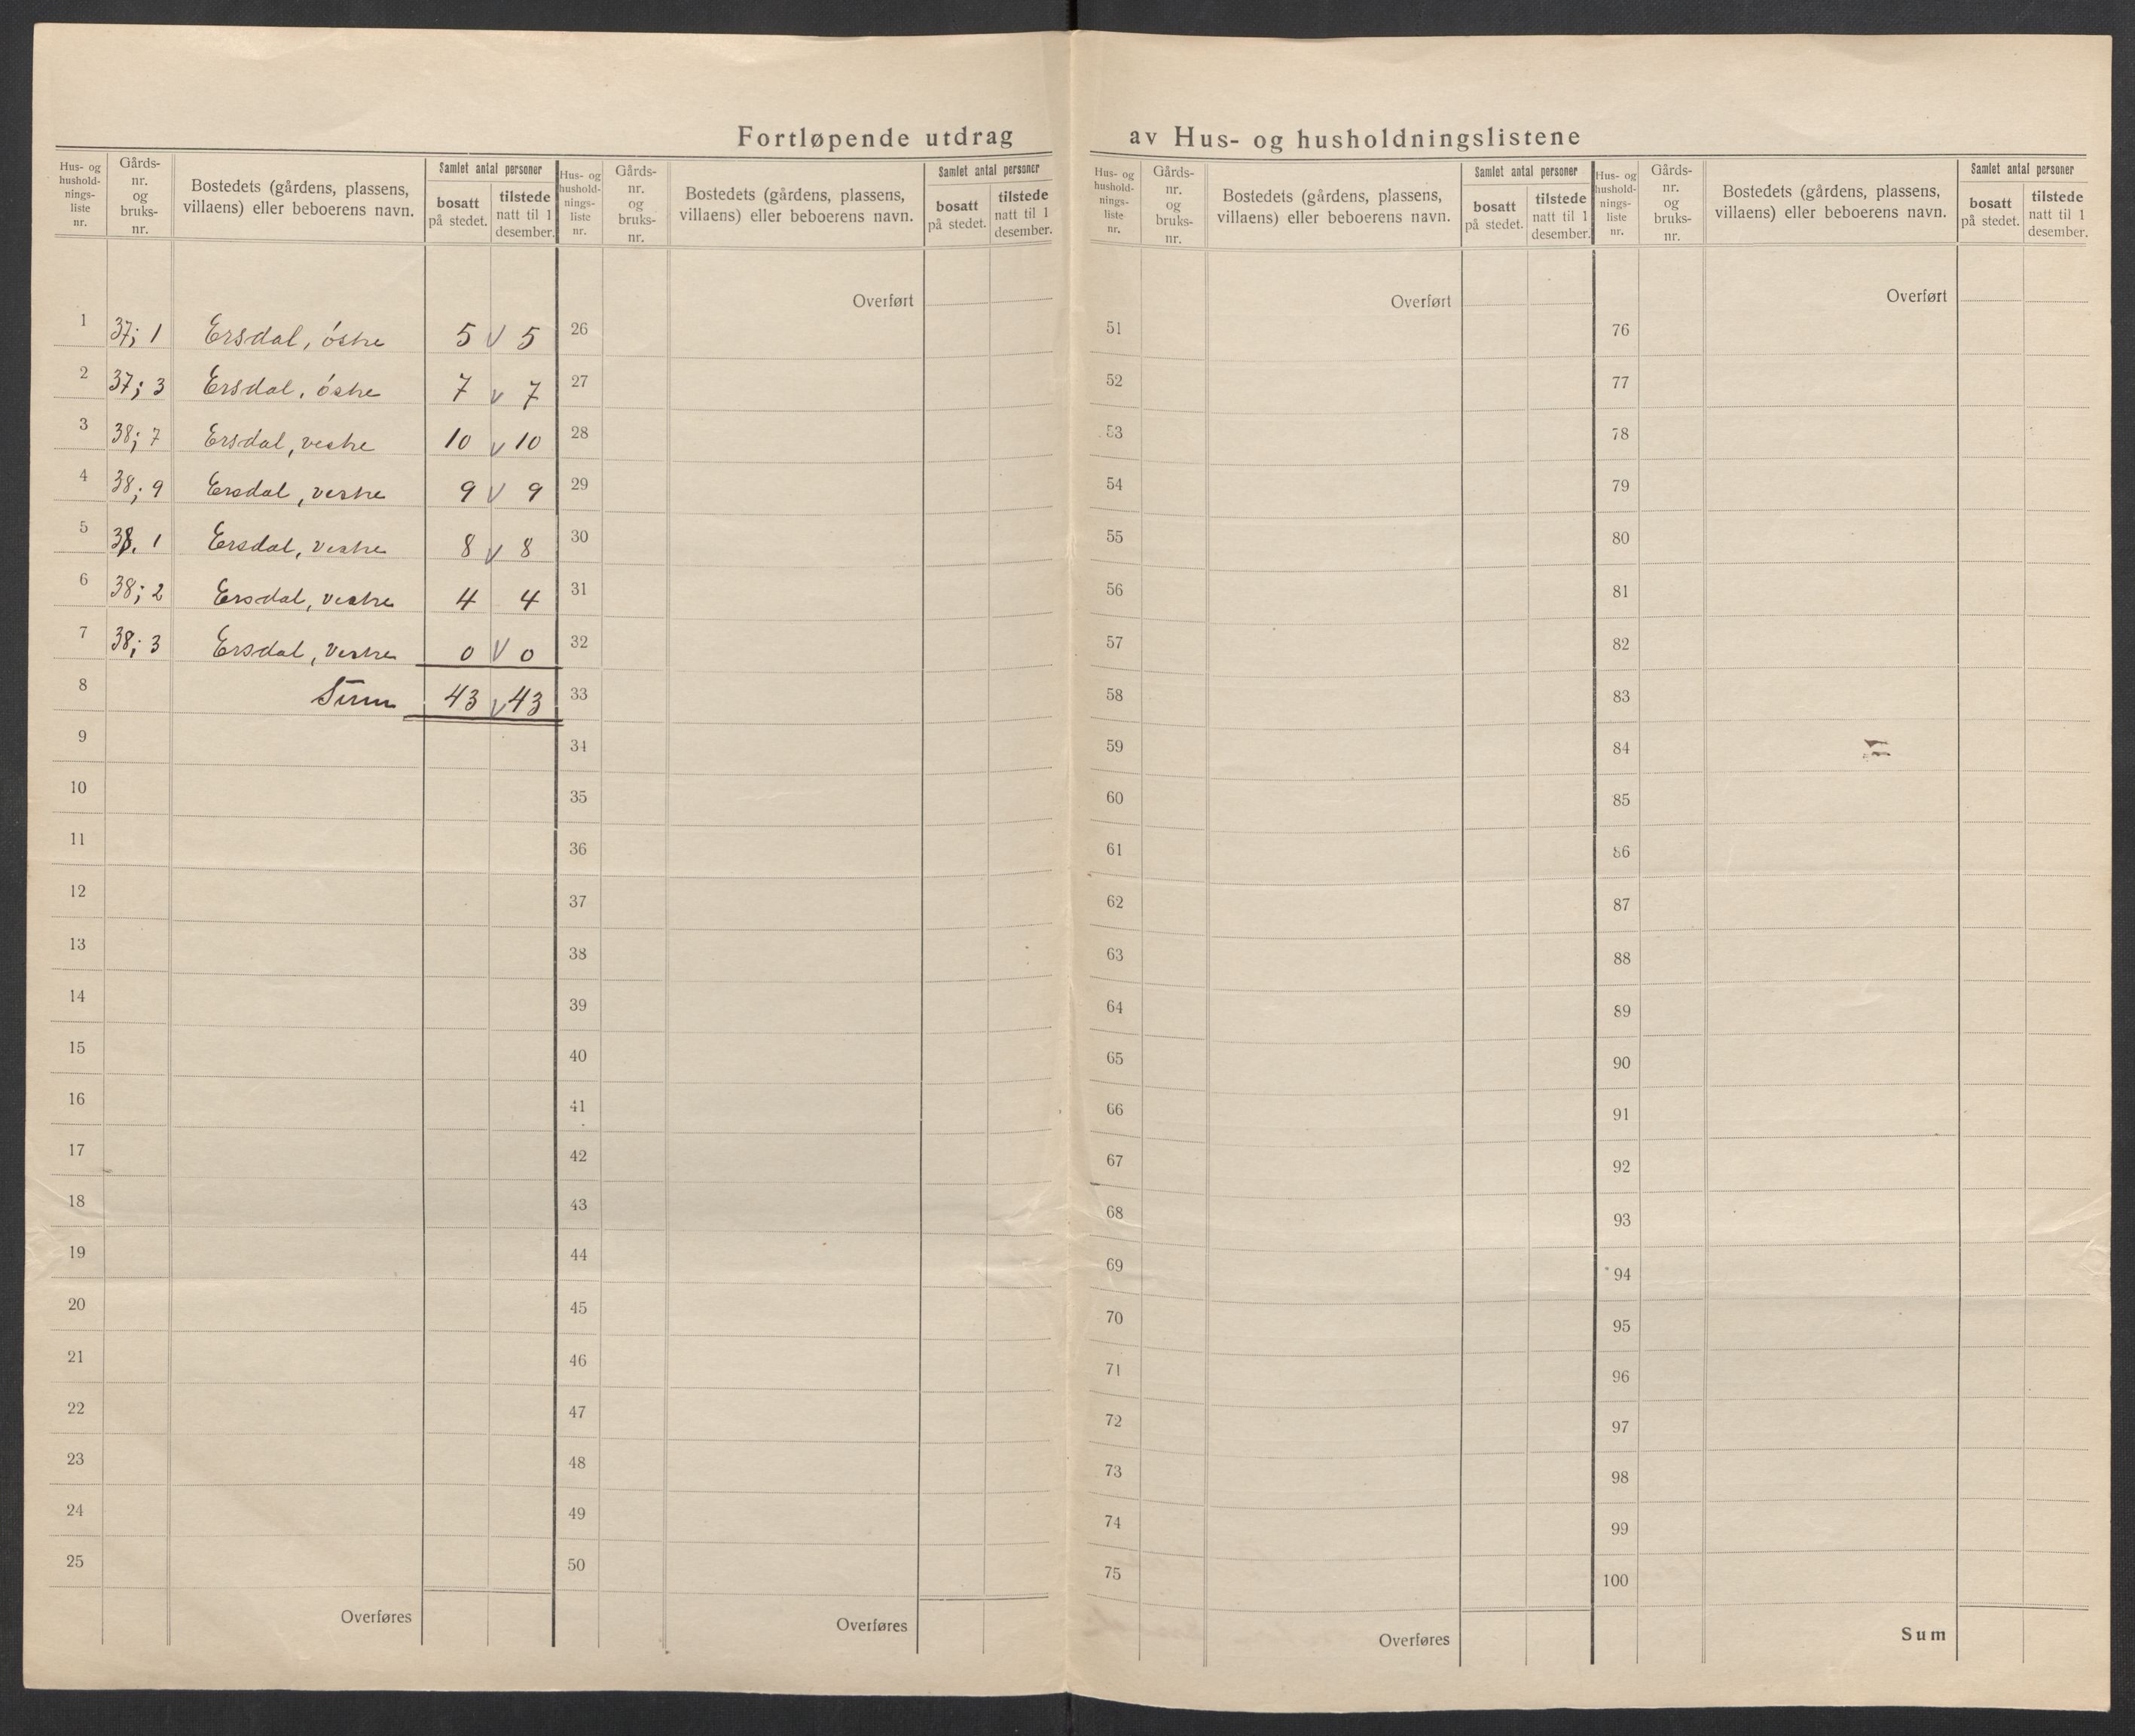 Fortløpende utdrag av Hus- og husholdningslistene
Hus- og
hushold-
nings-
liste
nr.
Gårds-
nr.
og
bruks-
nr.
Bostedets (gårdens, plassens,
villaens) eller beboerens navn.
Samlet antal personer
bosatt
på stedet.
tilstede
natt til 1
desember.
1 37; 1 Ersdal, østre 5 v 5
2 37; 3 Ersdal, østre 7 v 7
3 38; 7 Ersdal, vestre 10 v 10
4 38; 9 Ersdal, vestre 9 v 9
5 38. 1 Ersdal, vestre 8 v 8
6 38; 2 Ersdal, vestre 4 4
7 38; 3 Ersdal, vestre 0 v 0
8 Sum 43 v 43
9
10
11
12
13
14
15
16
17
18
19
20
21
22
23
24
25
Overføres
Hus- og
hushold-
nings-
liste
nr.
Gårds-
nr.
og
bruks-
nr.
Bostedets (gårdens, plassens,
villaens) eller beboerens navn.
Samlet antal personer
bosatt
på stedet.
tilstede
natt til 1
desember.
Overført
26
27
28
29
30
31
32
33
34
35
36
37
38
39
40
41
42
43
44
45
46
47
48
49
50
Overføres
Hus- og
hushold-
nings-
liste
nr.
Gårds-
nr.
og
bruks-
nr.
Bostedets (gårdens, plassens,
villaens) eller beboerens navn.
Samlet antal personer
bosatt
på stedet.
tilstede
natt til 1
desember.
Overført
51
52
53
54
55
56
57
58
59
60
61
62
63
64
65
66
67
68
69
70
71
72
73
74
75
Overføres
Hus- og
hushold-
nings-
liste
nr.
Gårds-
nr.
og
bruks-
nr.
Bostedets (gårdens, plassens,
villaens) eller beboerens navn.
Samlet antal personer
bosatt
på stedet.
tilstede
natt til 1
desember.
Overført
76
77
78
79
80
81
82
83
84
85
86
87
88
89
90
91
92
93
94
95
96
97
98
99
100
Sum